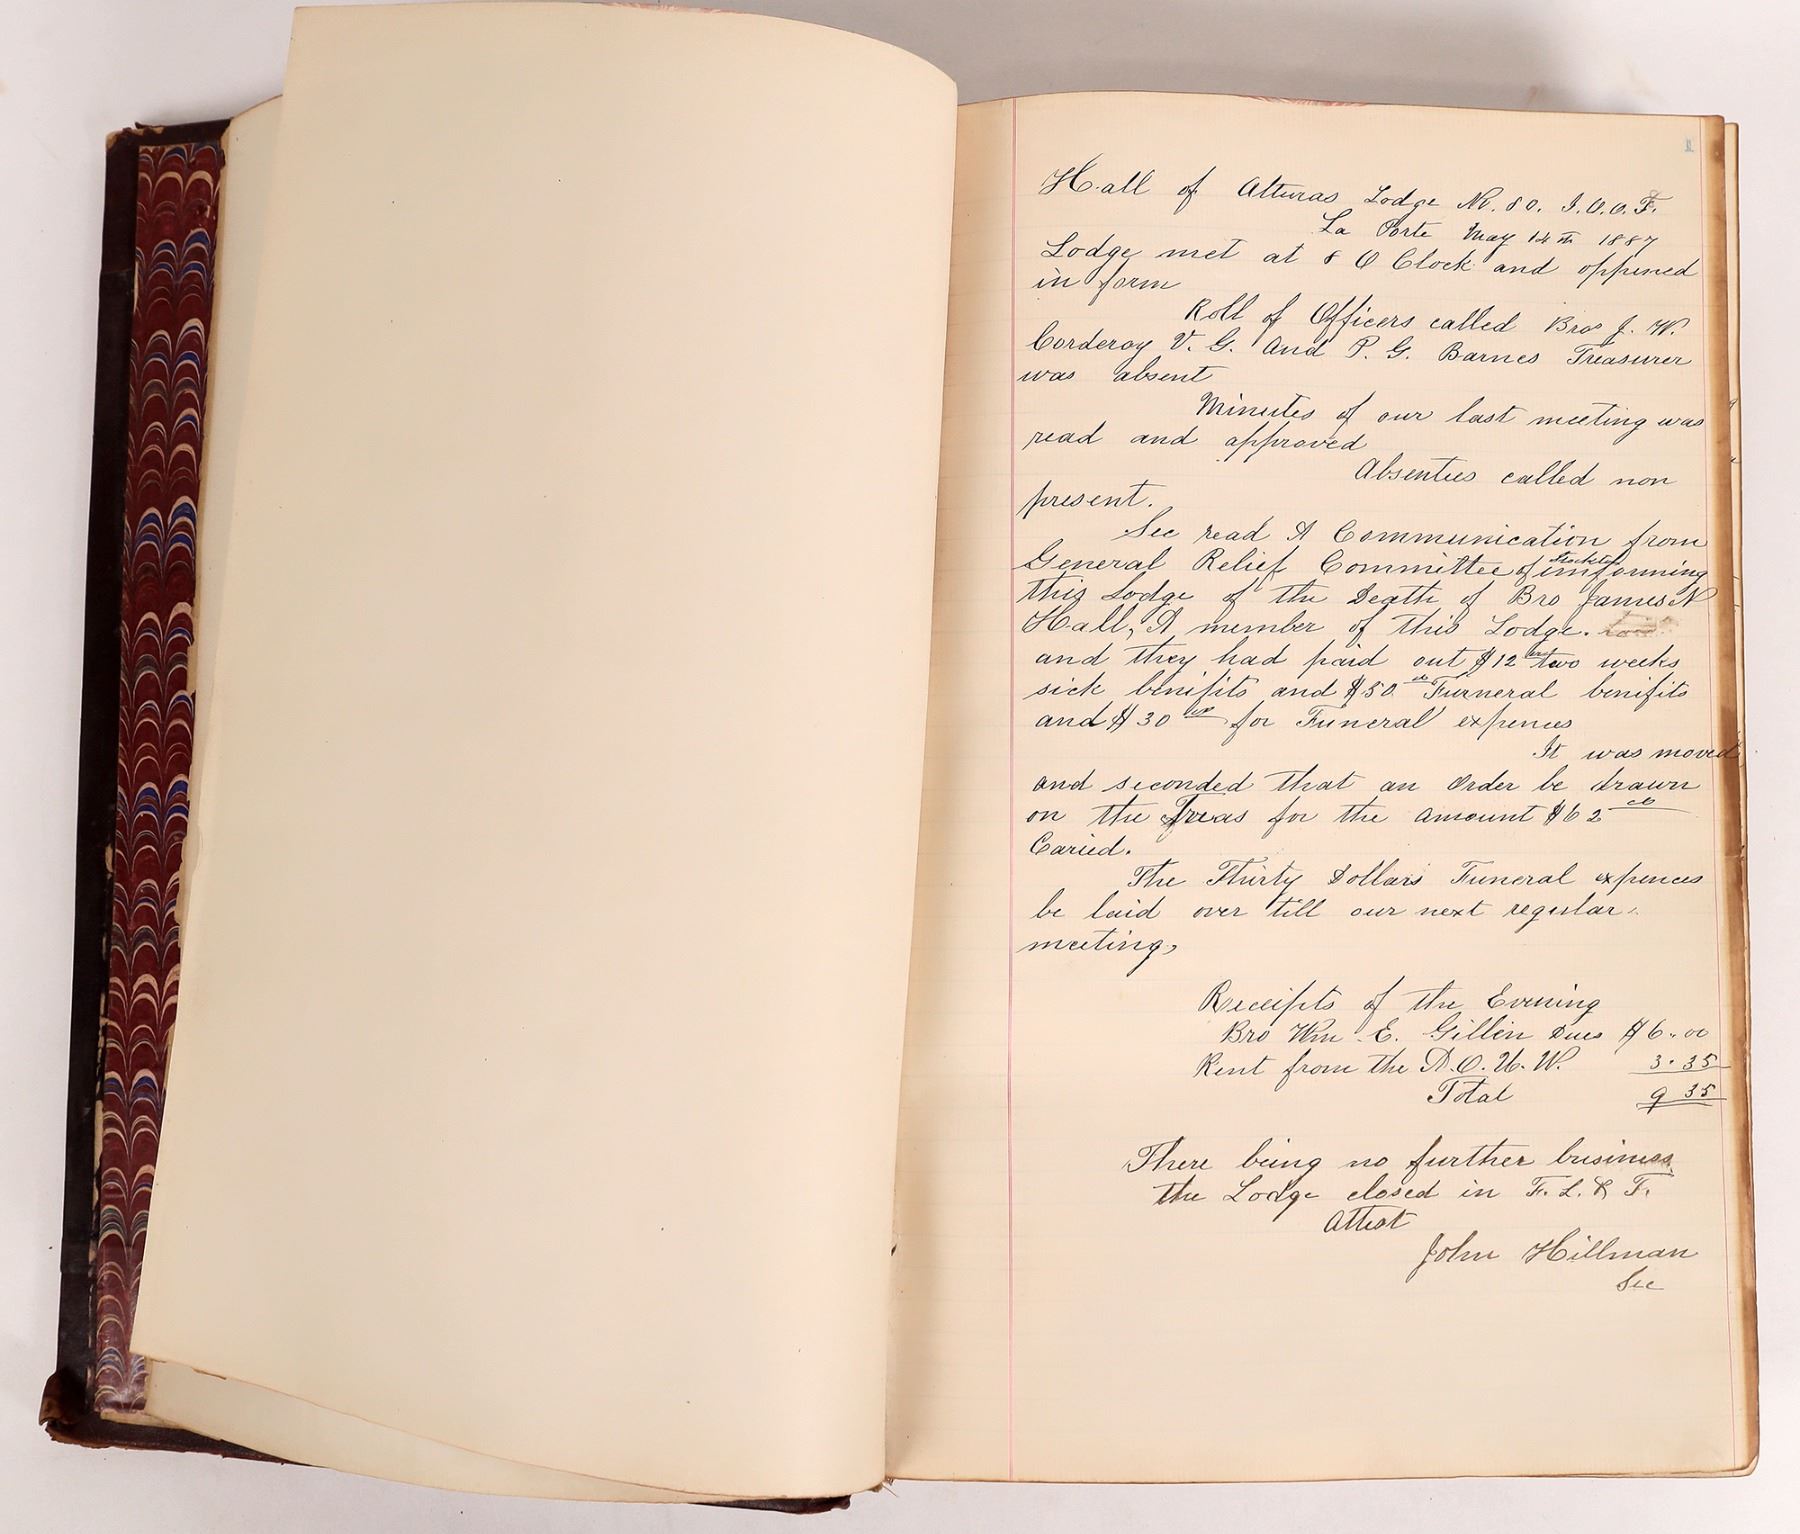 1
Hall of Alturas Lodge No. 80. I.O.O.F.
La Porte May 14th 1887
Lodge met at 8 O Clock and oppened
in form
Roll of Officers called Bros J. W.
Corderoy V. G. And P. G. Barnes Treasurer
was absent
Minutes of our last meeting was
read and approved
Absenties called non
present.
Sec read A Communication from
General Relief Committee of Stockton imforming
this Lodge of the Death of Bro James N
Hall, A member of this Lodge.
and they had paid out $12 00 two weeks
sick benifits and $50 00 Furneral benifits
and $30 00 for Funeral expences
It was moved
and seconded that an Order be drawn
on the Treas for the amount $62 00
Caried.
The Thirty Dollars Funeral expences
be laid over till our next regular
meeting,
Receipts of the Evening
Bro Wm. E. Gillen Dues $6.00
Rent from the A.O.U.W. 3.35
Total 9 35
There being no further business
the Lodge closed in F. L. & T.
Attest
John Hillman
Sec